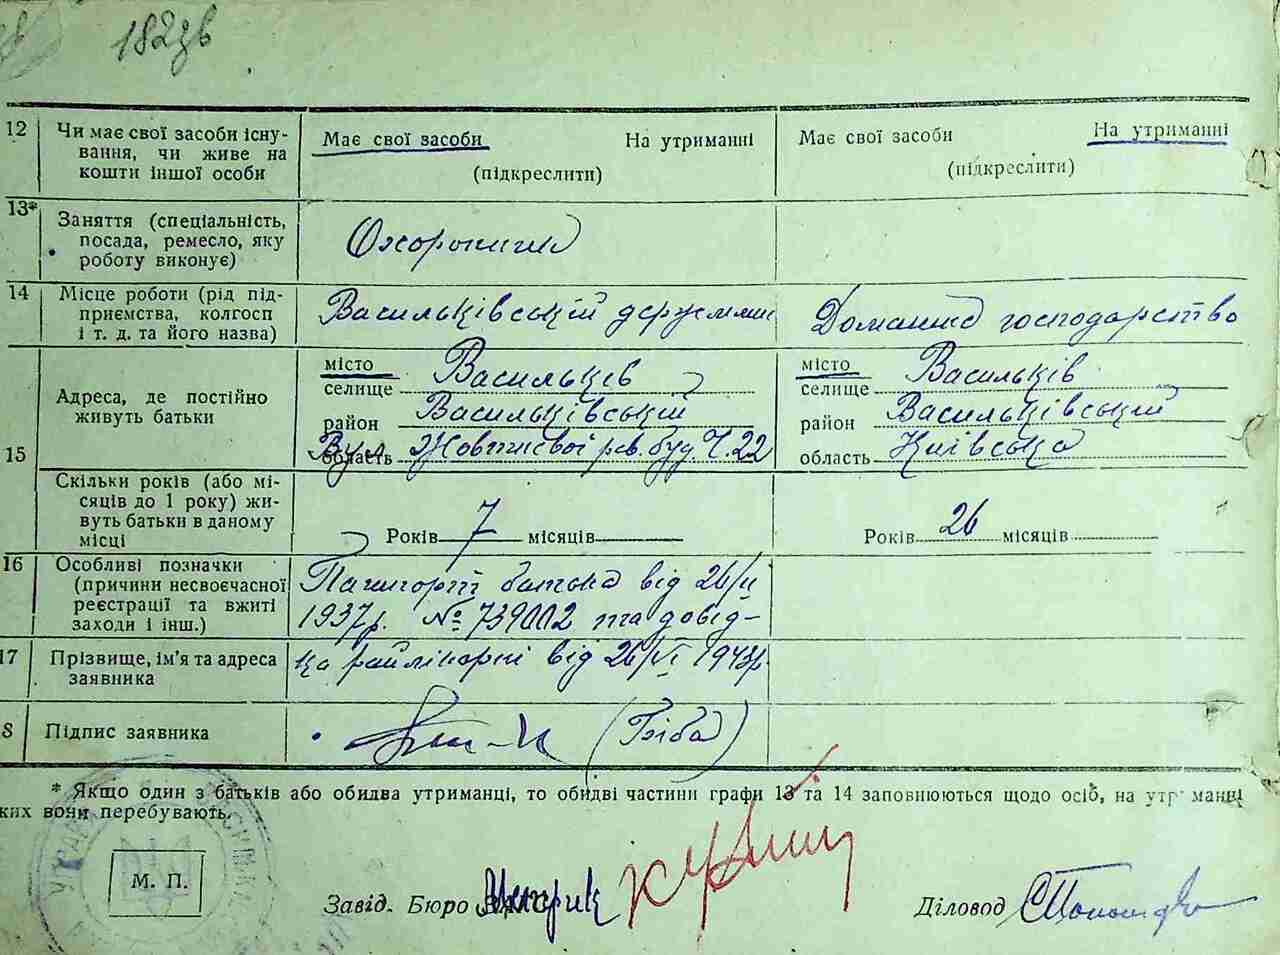 182зв
12 Чи має свої засоби існу- Має свої засоби На утриманні Має свої засоби На утриманні
вання, чи живе на (підкреслити) (підкреслити)
кошти іншої особи
13* Заняття (спеціальність,
посада, ремесло, яку
роботу виконує)
14 Місце роботи (рід під- Васильківський Домашнє господарство
приємства, колгосп
і т. д. та його назва)
15 Адреса, де постійно
живуть батьки
місто Васильків місто Васильків
селище селище
район Васильківський район Васильківський
область Вул. Жовтневої рев. буд. Ч. 22 область Київська
Скільки років (або мі-
сяців до 1 року) жи-
вуть батьки в даному
місці
Років 7 місяців Років 26 місяців
16 Особливі позначки Пашпорт батька від 26/
(причини несвоєчасної 1937р. № 739002 та довід-
реєстрації та вжиті
заходи і інш.)
17 Прізвище, ім'я та адреса ка райлікарні від 26/VI 194
заявника
8 Підпис заявника
* Якщо один з батьків або обидва утриманці, то обидві частини графи 13 та 14 заповнюються щодо осіб, на утр манці
ких вони перебувають.
М. П.
Завід. Бюро Діловод